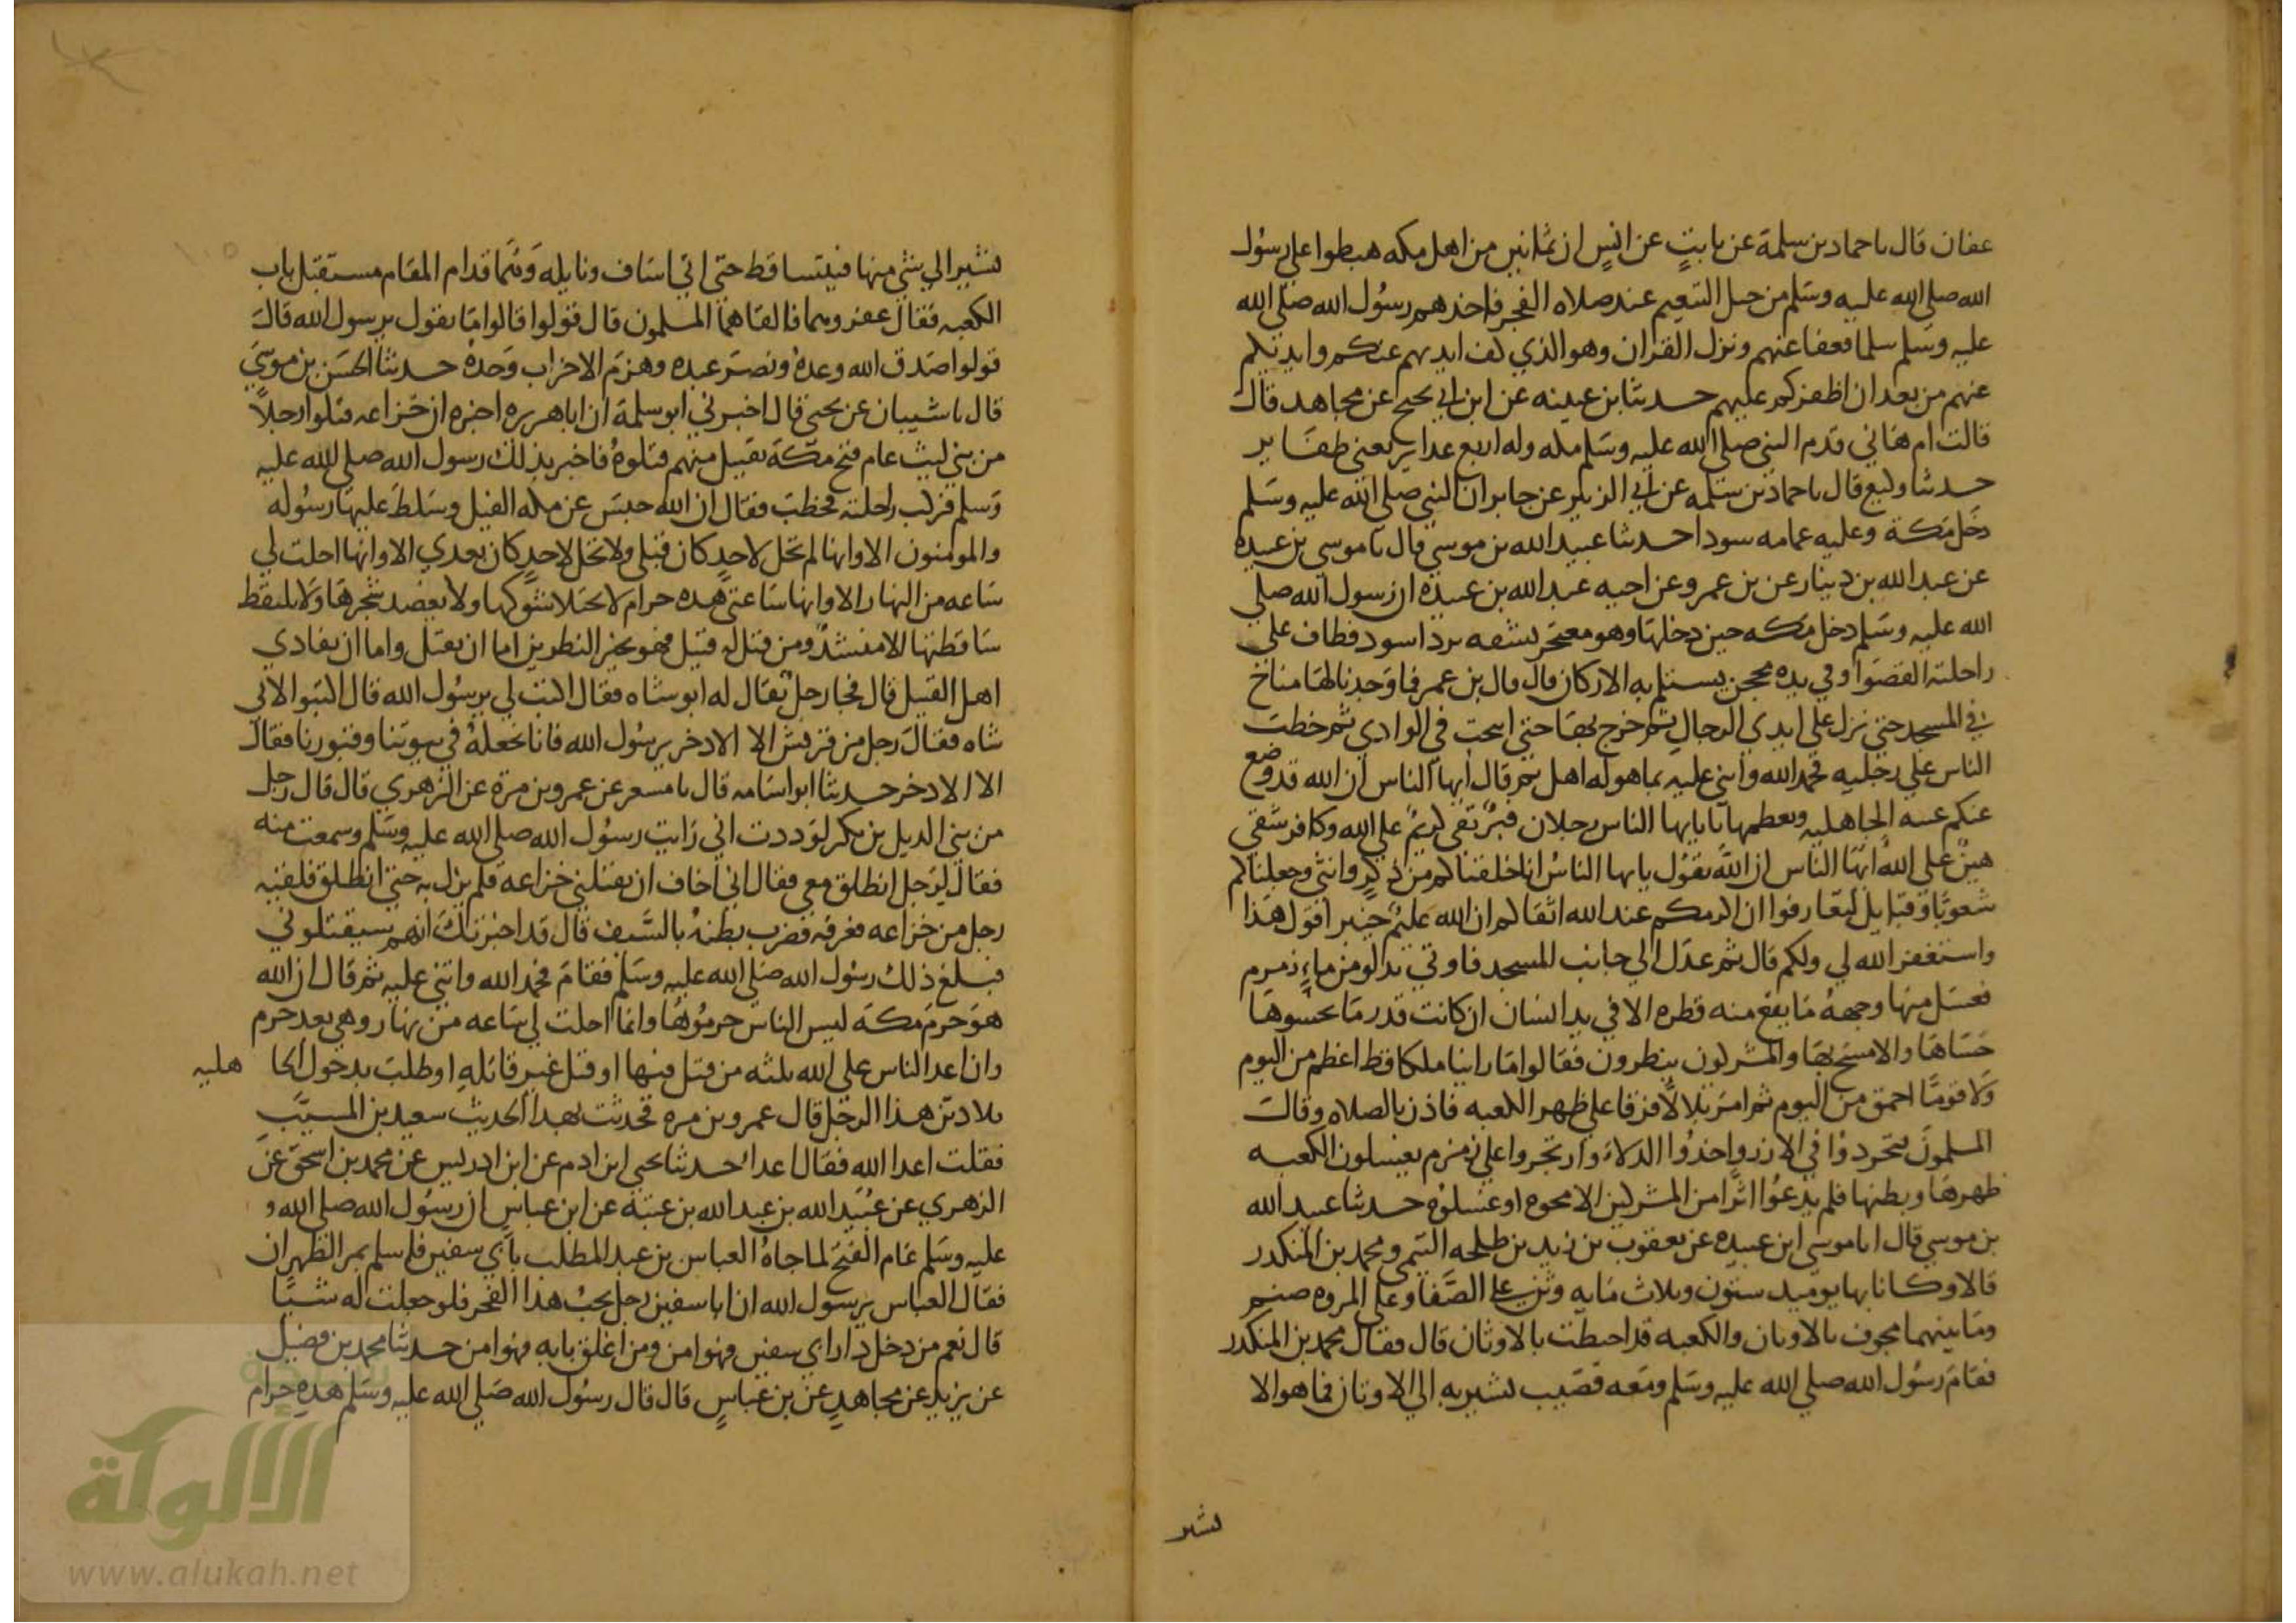 عفان قال نا حماد بن سلمة عن ثابتٍ عن انسٍ ان ثمانين من اهل مكه هبطوا علي رسُول
الله صلي الله عليه وسَلم من جبل التنعيم عند صلاه الفجر فاخذهم رسُول الله صلي الله
عليه وسَلم سلما فعفا عنهم ونزل القران وهو الذي كف ايديهم عنكم وايديكم
عنهم من بعد ان اظفركم عليهم حدثنا بن عيينه عن ابن ابي نجيح عن مجاهد قال
قالت ام هاني قدم النبي صلي الله عليه وسَلم مكه وله اربع غداير يعني ظفاير
حدثنا وكيع قال نا حماد بن سَلمه عن ابي الزبير عن جابر ان النبي صلي الله عليه وسَلم
دخَل مَكة وعليه عمامه سودا حدثنا عبيد الله بن موسي قال نا موسي بن عبيده
عن عبد الله بن دينار عن بن عمر وعن اخيه عبد الله بن عبيده ان رسول الله صلي
الله عليه وسَلم دخل مَكه حين دخلها وهو معتجر بشقه برد اسود فطاف علي
راحلته القصَوا وفي يده محجن يستلم به الاركان قال قال بن عمر فما وَجدنا لها مناخ
في المسجد حتي نزل علي ايدي الرجال ثم خرج بها حتي انيخت في الوادي ثم خطب
الناس علي رجليه فحمد الله واثني عليه بما هو له اهل ثم قال ايها الناس ان الله قد وضع
عنكم عبيه الجاهليه وتعظمها بابايها الناس رجلان فبرٌ تقي كريمٌ علي الله وكافر شقي
هينٌ علي الله ايها الناس ان الله يقول يايها الناسُ انا خلقناكم من ذكرٍ وانثي وجعلناكم
شعوبًا وقبايل لتعارفوا ان اكرمكم عند الله اتقاكم ان الله عليمٌ خبير اقول هَذا
واستغفر الله لي ولكم قال ثم عدَل الي جانب المسجد فاوتي بدلو من ماءِ زمزم
فغسَل منها وجههُ مَا يقع منه قطره الا في يد انسَان ان كانت قدر مَا يحسوها
حَسَاهَا والا مسَح بهَا والمشركون ينظرون فقالوا مَا راينا ملكا قط اعظم من اليوم
وَلا قومًا احمق من اليوم ثم امَر بلالاً فرقا علي ظهر الكعبه فاذن بالصلاه وقام
المسلمونَ فتجردوُا في الازر واخذوُا الدلاء وارتجروا علي زمزم يغسلون الكعبه
ظهرهَا وبطنها فلم يدعُوا اثرًا من المشركين الا محوه او غسَلوُه حدثنا عبيد الله
بن موسي قال انا موسي ابن عبيده عن يعقوب بن زيد بن طلحه التيمي ومحمد بن المنكدر
قالا وكانا بها يوميد ستون وثلاث مَايه وثن علي الصَّفا وعلي المروه صنم
ومَا بينهما محجوف بالاوثان والكعبه قد احيطت بالاوثان قال فقال محمد بن المنكدر
فقامَ رسُول الله صلي الله عليه وسَلم ومَعه قضيب يشير به الي الاوثان فما هو الا
يشير
يشير الي شي منها فيتساقط حتي اتي اسَاف ونايله وَهُما قدام المقام مستقبل باب
الكعبه فقال عفروهما فالقاهمَا المسلمون قال قولوا قالوا مَا نقول يرسول الله قال
قولوا صَدق الله وعدهُ ونصَر عبده وهزمَ الاحزاب وَحدهُ حدثنا الحسَن بن موسَي
قال نا شيبان عن يحيي قال اخبرني ابو سلمة ان ابا هريره اخبره ان خزاعه قتلوا رجلاً
من بني ليث عام فتح مكَة بقتيل منهم قتلوهُ فاخبر بذلك رسول الله صلي الله عليه
وَسلم فركب راحلته فخطبَ فقال ان الله حبسَ عن مكه الفيل وسَلط عليها رسُوله
والمومنون الا وانها لم تحل لاحدٍ كان قبلي ولا تحل لاحدٍ كان بعدي الا وانها احلت لي
سَاعه من النهار الا وانها سَاعتي هذه حرام لا يختلا شَوكها ولا يعضد شجرهَا وَلا يلتقط
سَاقطتها الا منشدٌ ومن قتل له قتيل فهو بخير النظرين اما ان يقتل واما ان يفادي
اهل القتيل قال فجا رجل يُقال له ابو شاه فقال اكتب لي يرسُول الله قال اكتبوا لابي
شاه فقالَ رجل من قريش الا الادخر يرسُول الله فانا نجعلهُ في بيوتنا وقبورنا فقال
الا الادخر حدثنا ابو اسَامه قال نا مسعر عن عمرو بن مرة عن الزهري قال قال رجل
من بني الديل بن بكر لوَددت اني رَايت رسُول الله صلي الله عليه وسَلم وسمعت منه
فقالَ لرَجل انطلق معي فقال اني اخاف ان يقتلني خزاعه فلم يزل به حتي انطلق فلقيه
رجل من خزاعه فعرفه فضرب بطنهُ بالسَّيف قال قد اخبرتك انهم سيقتلوني
فبلغ ذلك رسُول الله صَلي الله عليه وسَلم فقامَ فحمد الله واثني عليه ثم قال ان الله
هوَ حرمَ مَكة ليس الناس حرموُهَا وانما احلت لي سَاعه من نهار وهي بعد حرم
وان اعدا الناس علي الله ثلثه من قتل فيها او قتل غير قاتلهِ او طلبَ بدخول الجاهليه
فلادين هذا الرجل قال عمرو بن مره فحدثت بهذا الحديث سعيد بن المسيّبِ
فقلت اعدا الله فقال اعدا حدثنا يحيي ابن ادم عن ابن ادريس عن محمد بن اسحق عن
الزهري عن عُبَيد الله بن عبد الله بن عتبة عن ابن عباسٍ ان رسُول الله صلي الله
عليه وسَلم عَام الفتح لما جاهُ العباس بن عبد المطلب بأبي سفين فاسلم بمر الظهران
فقال العباس يرسول الله ان ابا سفين رجل يحبُ هذا الفخر فلو جعلت له شيًا
قال نعم من دخل دار ابي سفين فهو امن ومن اغلق بابه فهو امن حدثنا محمد بن فضيل
عن يزيد عن مجاهدٍ عن بن عباسٍ قال قال رسُول الله صَلي الله عليه وسَلم هذه حرام
الألوكة
www.alukah.net